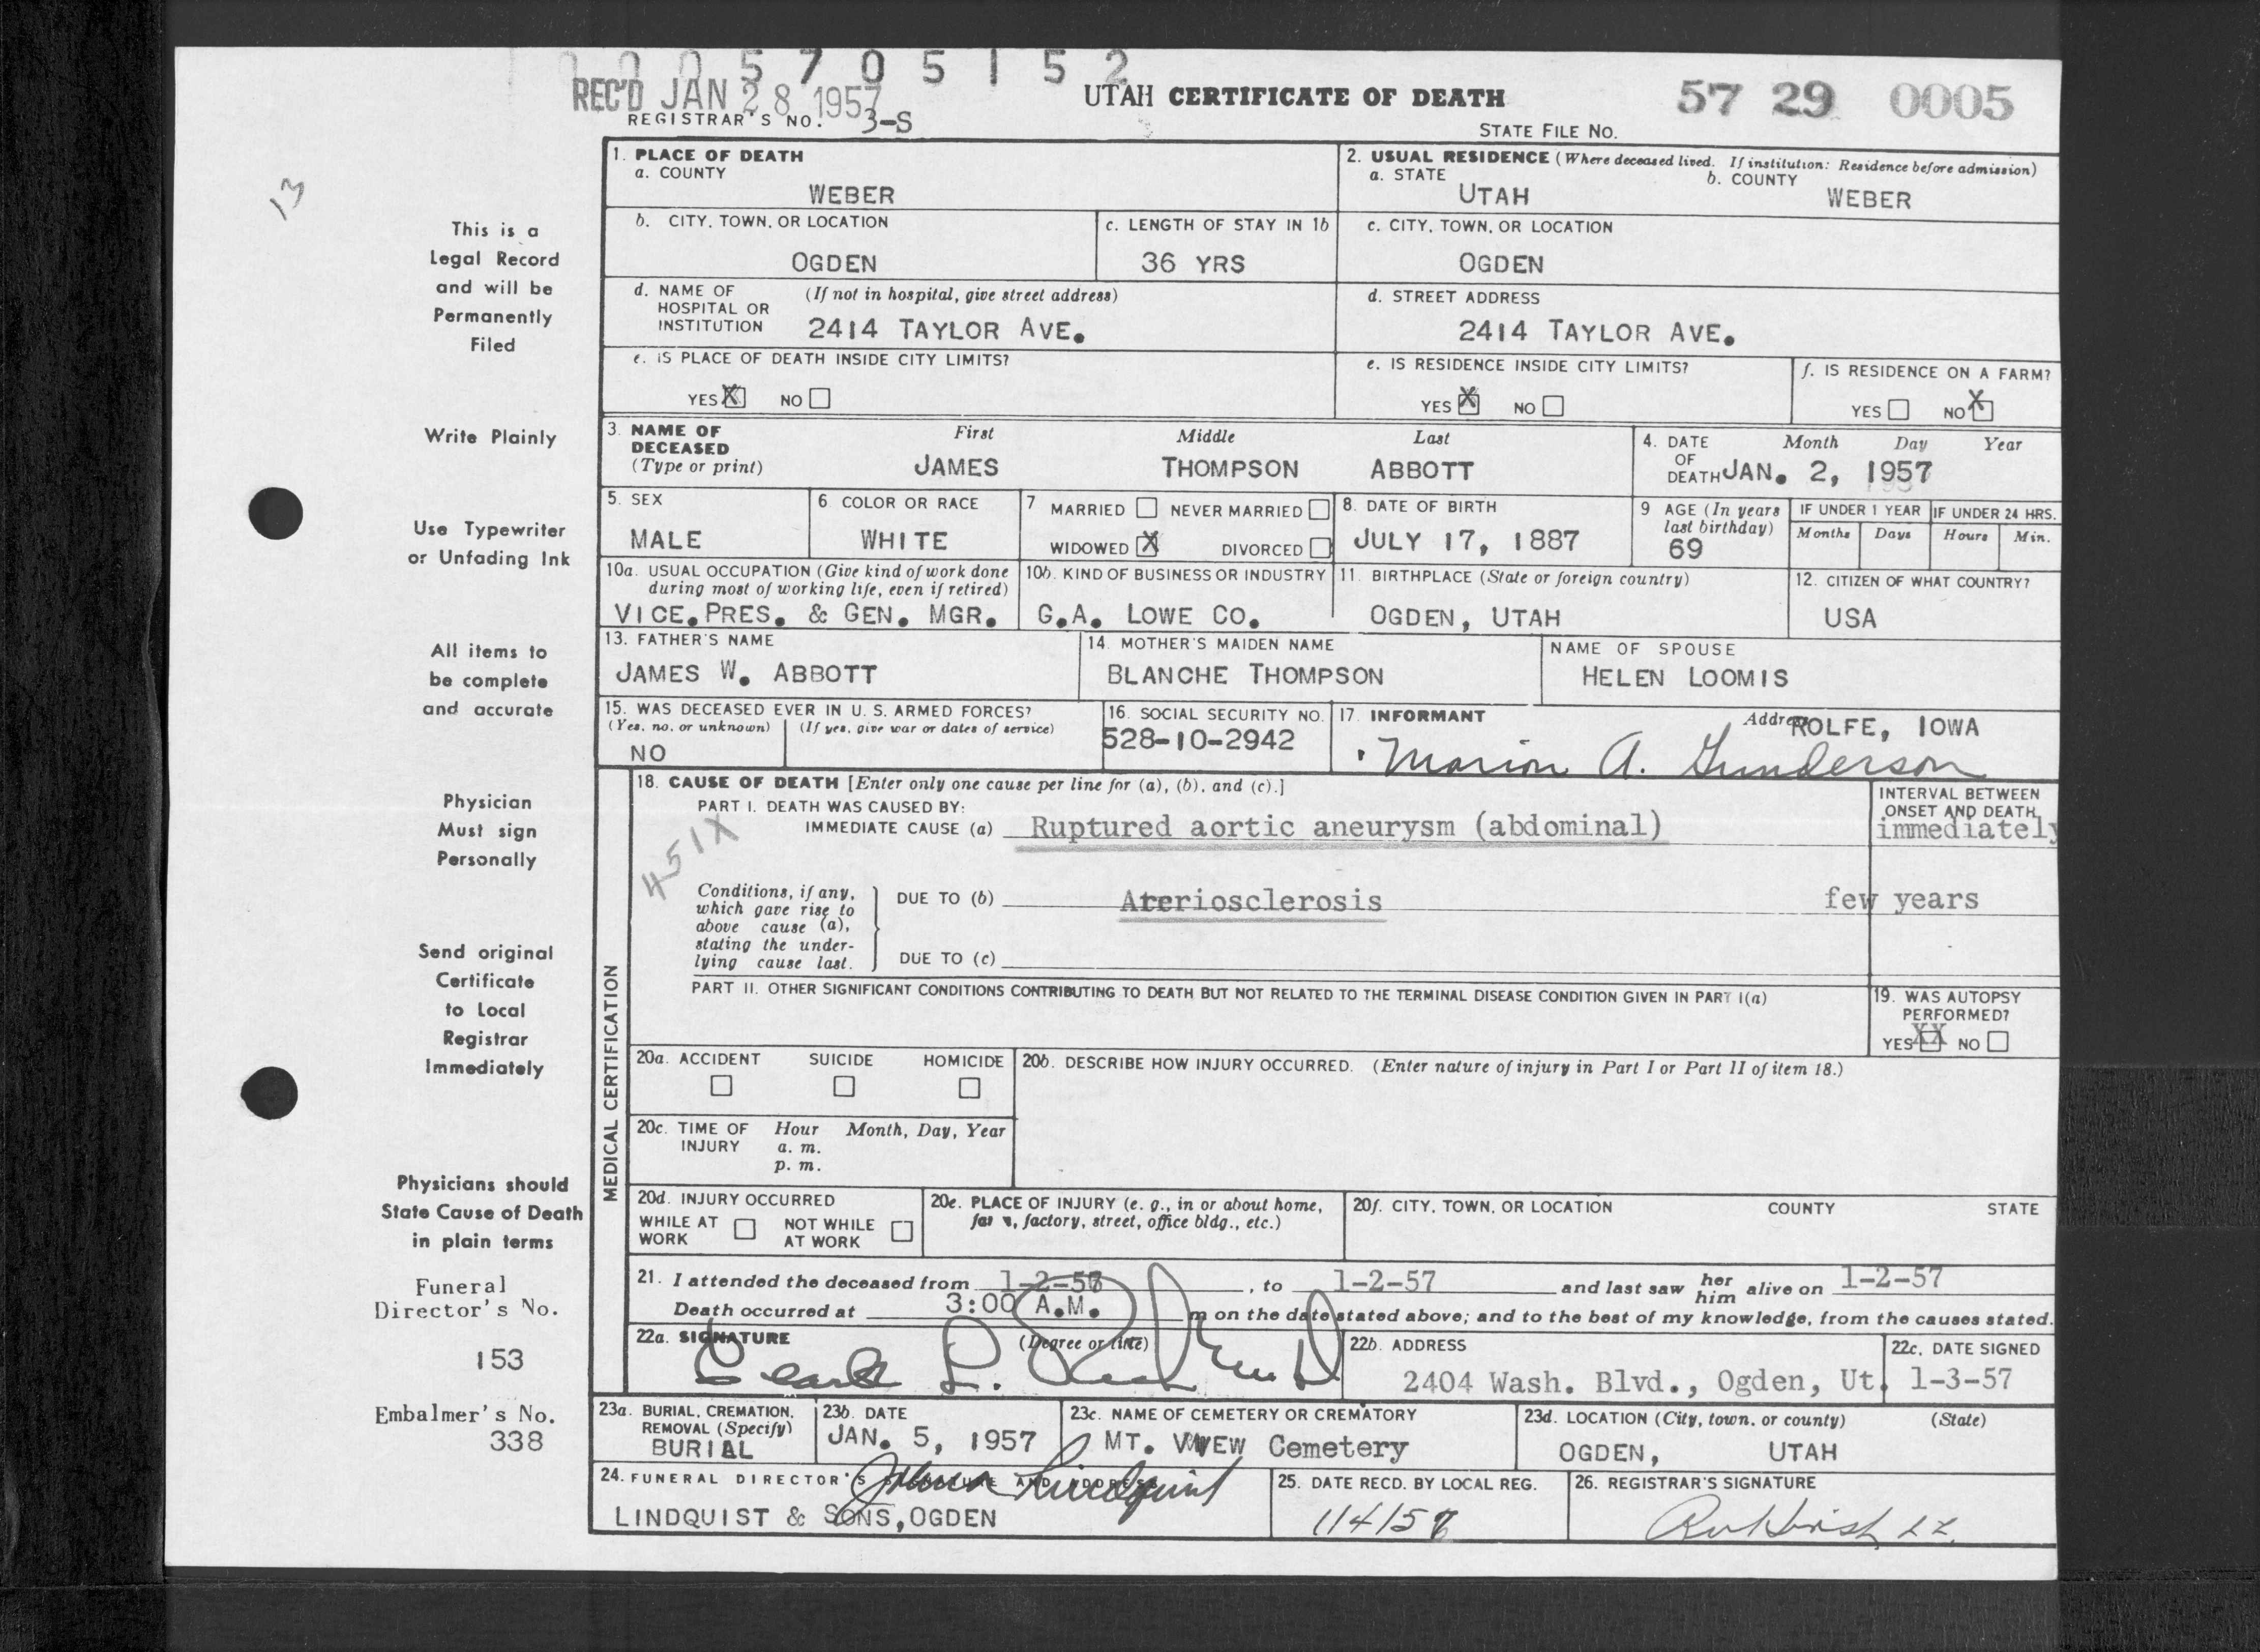 0005705152
REC'D JAN 28 1957
REGISTRAR'S NO. 3-S
UTAH CERTIFICATE OF DEATH
57 29 0005
STATE FILE NO.
13
This is a
Legal Record
and will be
Permanently
Filed
Write Plainly
Use Typewriter
or Unfading Ink
All items to
be complete
and accurate
Physician
Must sign
Personally
Send original
Certificate
to Local
Registrar
Immediately
Physicians should
State Cause of Death
in plain terms
Funeral
Director's No.
153
Embalmer's No.
338
1. PLACE OF DEATH
a. COUNTY
WEBER
2. USUAL RESIDENCE (Where deceased lived. If institution: Residence before admission)
a. STATE b. COUNTY
UTAH WEBER
b. CITY, TOWN, OR LOCATION
OGDEN
c. LENGTH OF STAY IN 1b
36 YRS
c. CITY, TOWN, OR LOCATION
OGDEN
d. NAME OF HOSPITAL OR INSTITUTION (If not in hospital, give street address)
2414 TAYLOR AVE.
d. STREET ADDRESS
2414 TAYLOR AVE.
e. IS PLACE OF DEATH INSIDE CITY LIMITS?
YES X NO
e. IS RESIDENCE INSIDE CITY LIMITS?
YES X NO
f. IS RESIDENCE ON A FARM?
YES NO X
3. NAME OF DECEASED (Type or print)
First Middle Last
JAMES THOMPSON ABBOTT
4. DATE OF DEATH Month Day Year
JAN. 2, 1957
5. SEX
MALE
6 COLOR OR RACE
WHITE
7 MARRIED NEVER MARRIED
WIDOWED X DIVORCED
8. DATE OF BIRTH
JULY 17, 1887
9 AGE (In years last birthday)
69
IF UNDER 1 YEAR IF UNDER 24 HRS.
Months Days Hours Min.
10a. USUAL OCCUPATION (Give kind of work done during most of working life, even if retired)
VICE.PRES. & GEN. MGR.
10b. KIND OF BUSINESS OR INDUSTRY
G.A. LOWE CO.
11. BIRTHPLACE (State or foreign country)
OGDEN, UTAH
12. CITIZEN OF WHAT COUNTRY?
USA
13. FATHER'S NAME
JAMES W. ABBOTT
14. MOTHER'S MAIDEN NAME
BLANCHE THOMPSON
NAME OF SPOUSE
HELEN LOOMIS
15. WAS DECEASED EVER IN U. S. ARMED FORCES?
(Yes, no, or unknown) (If yes, give war or dates of service)
NO
16. SOCIAL SECURITY NO.
528-10-2942
17. INFORMANT Address
ROLFE, IOWA
Marion A. Gunderson
MEDICAL CERTIFICATION
18. CAUSE OF DEATH [Enter only one cause per line for (a), (b), and (c).]
PART I. DEATH WAS CAUSED BY:
IMMEDIATE CAUSE (a) Ruptured aortic aneurysm (abdominal)
INTERVAL BETWEEN ONSET AND DEATH
immediately
451X
Conditions, if any, which gave rise to above cause (a), stating the underlying cause last.
DUE TO (b) Ateriosclerosis few years
DUE TO (c)
PART II. OTHER SIGNIFICANT CONDITIONS CONTRIBUTING TO DEATH BUT NOT RELATED TO THE TERMINAL DISEASE CONDITION GIVEN IN PART I(a)
19. WAS AUTOPSY PERFORMED?
YES XX NO
20a. ACCIDENT SUICIDE HOMICIDE
20b. DESCRIBE HOW INJURY OCCURRED. (Enter nature of injury in Part I or Part II of item 18.)
20c. TIME OF INJURY Hour Month, Day, Year
a. m.
p. m.
20d. INJURY OCCURRED
WHILE AT WORK NOT WHILE AT WORK
20e. PLACE OF INJURY (e. g., in or about home, farm, factory, street, office bldg., etc.)
20f. CITY, TOWN, OR LOCATION COUNTY STATE
21. I attended the deceased from 1-2-57, to 1-2-57 and last saw her him alive on 1-2-57
Death occurred at 3:00 A.M. m on the date stated above; and to the best of my knowledge, from the causes stated.
22a. SIGNATURE (Degree or title)
22b. ADDRESS
2404 Wash. Blvd., Ogden, Ut.
22c. DATE SIGNED
1-3-57
23a. BURIAL, CREMATION, REMOVAL (Specify)
BURIAL
23b. DATE
JAN. 5, 1957
23c. NAME OF CEMETERY OR CREMATORY
MT. VIEW Cemetery
23d. LOCATION (City, town, or county) (State)
OGDEN, UTAH
24. FUNERAL DIRECTOR'S SIGNATURE AND ADDRESS
Lindquist
LINDQUIST & SONS, OGDEN
25. DATE RECD. BY LOCAL REG.
1/4/57
26. REGISTRAR'S SIGNATURE